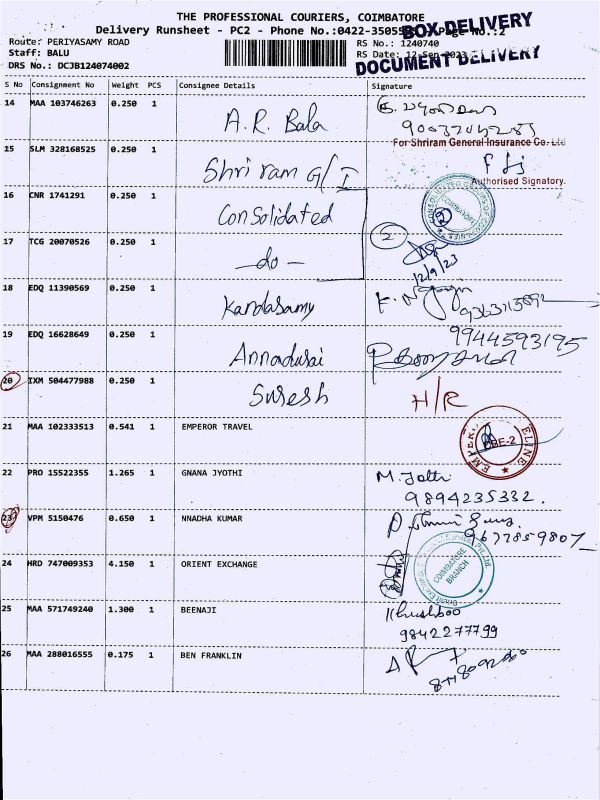 THE PROFESSIONAL COURIERS, COIMBATORE
Delivery Runsheet - PC2 - Phone No.:0422-3505 Page No.:2
BOX DELIVERY
Route: PERIYASAMY ROAD RS No.: 1240740
Staff: BALU RS Date: 12-Sep-2023
DOCUMENT DELIVERY
DRS No.: DCJB124074002
S No Consignment No Weight PCS Consignee Details Signature
14 MAA 103746263 0.250 1 A.R. Bala
15 SLM 328168525 0.250 1 Shri ram G/I
For Shriram General Insurance Co. Ltd
Authorised Signatory.
16 CNR 1741291 0.250 1 Consolidated
COIMBATORE
17 TCG 20070526 0.250 1 -do- 2
12/9/23
18 EDQ 11390569 0.250 1 Kandasamy
19 EDQ 16628649 0.250 1 Annadurai 9944593195
20 IXM 504477988 0.250 1 Suresh H/R
21 MAA 102333513 0.541 1 EMPEROR TRAVEL
22 PRO 15522355 1.265 1 GNANA JYOTHI M. Jothi
9894235332.
23 VPM 5150476 0.650 1 NNADHA KUMAR
9677859807
24 HRD 747009353 4.150 1 ORIENT EXCHANGE
COIMBATORE
BRANCH
25 MAA 571749240 1.300 1 BEENAJI Khushboo
9842277799
26 MAA 288016555 0.175 1 BEN FRANKLIN